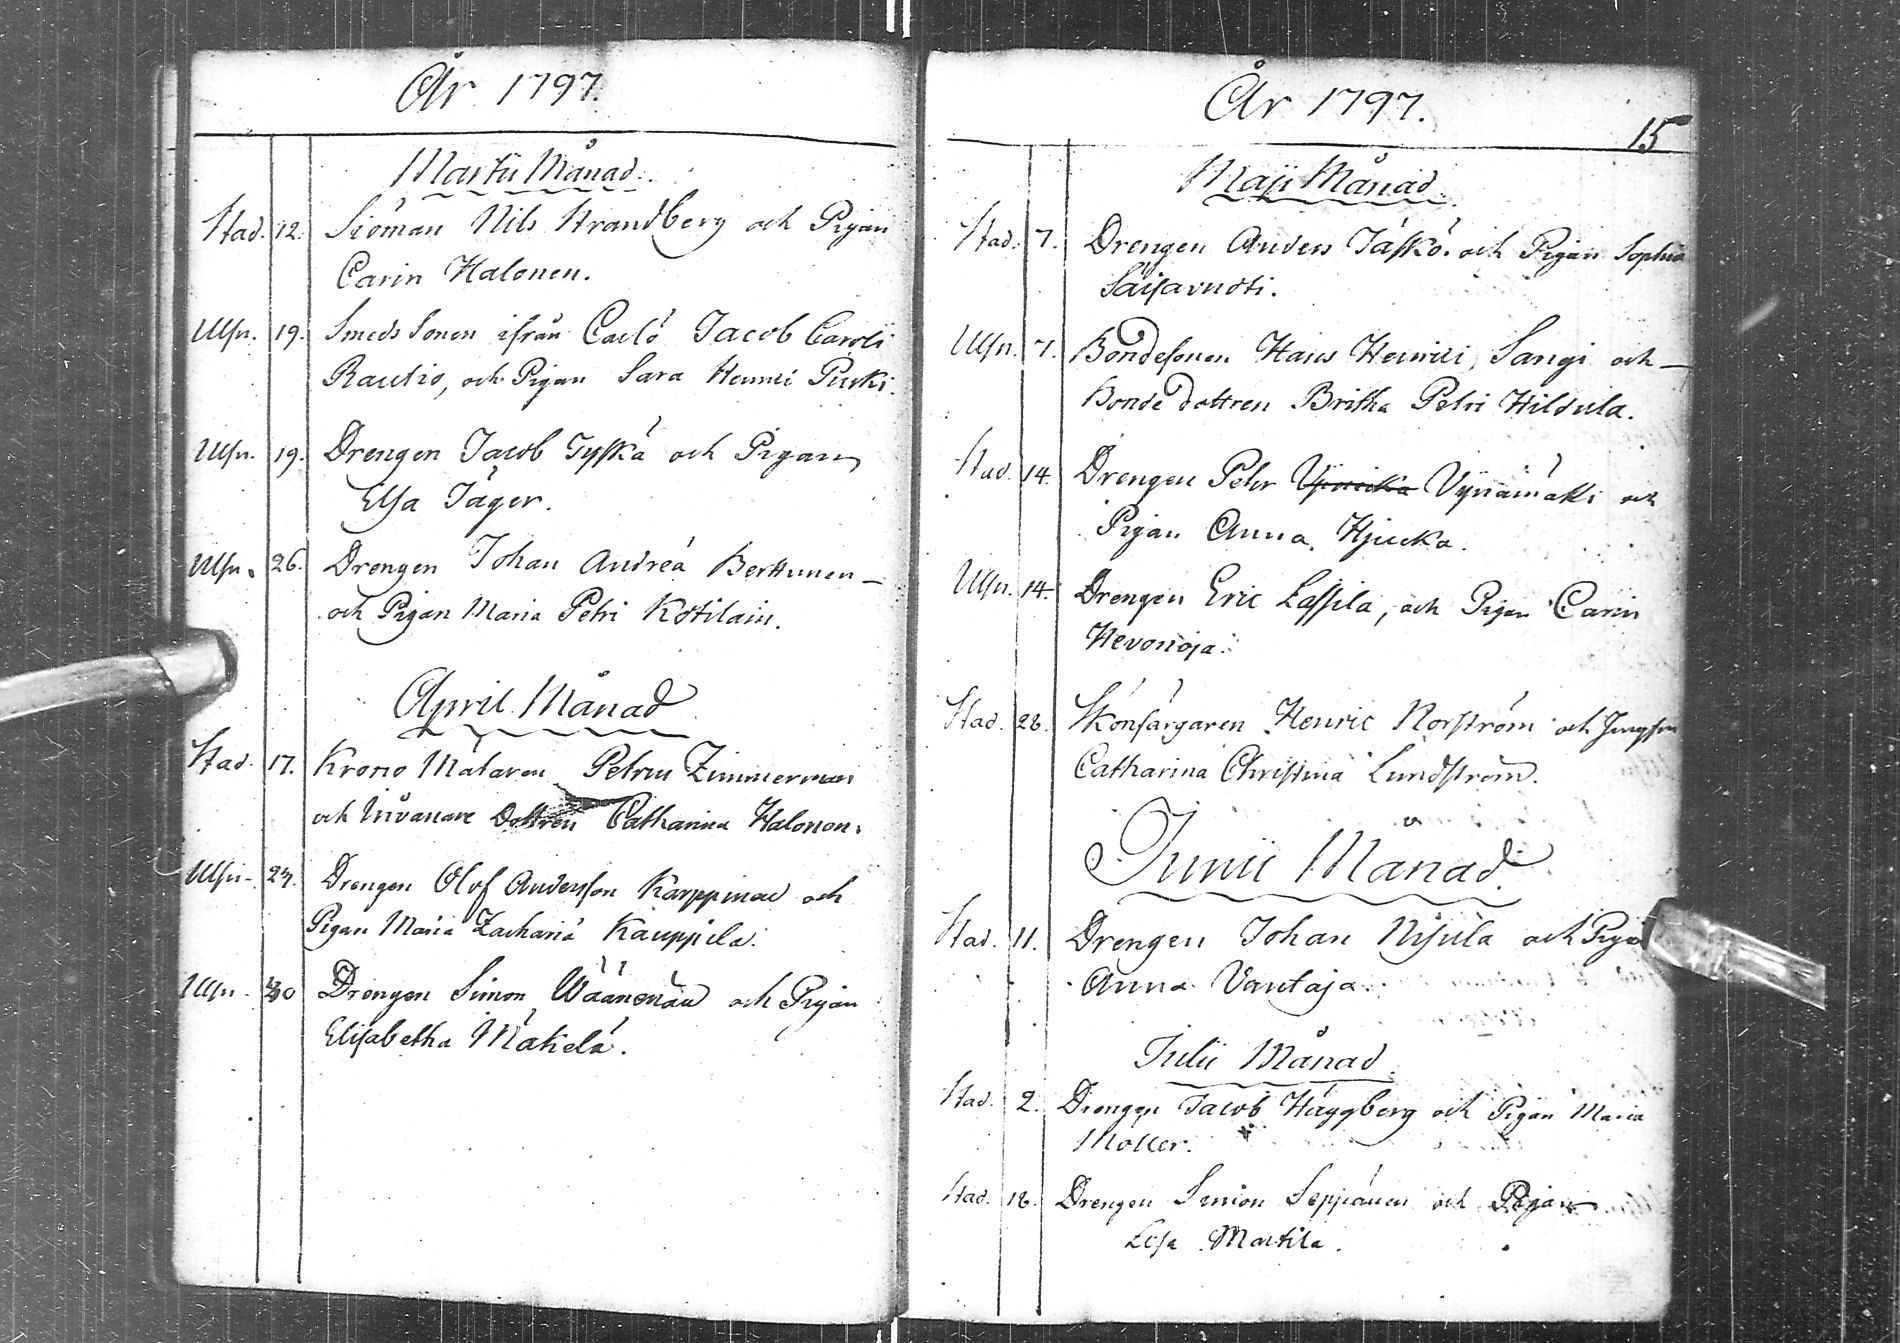 År 1797.
Martii Månad.
Stad. 12. Siöman Nils Strandberg och Pigan
Carin Halonen.
Ulfn. 19. Smeds Sonen ifrån Carlö Jacob Caroli
Rautio, och Pigan Sara Henrici Purki.
Ulfn. 19. Drengen Jacob Tyskä och Pigan
Elsa Jäger.
Ulfn. 26. Drengen Johan Andreä Berttunen
och Pigan Maria Petri Kotilain.
April Månad
Stad. 17. Krono Målaren Petrus Zimmerman
och Invånare Dottren Catharina Halonen.
Ulfn. 23. Drengen Olof Andersson Karppinen och
Pigan Maria Zachariä Kauppila.
Ulfn. 30 Drengen Simon Wäänänän och Pigan
Elisabetha Mäkelä.
År 1797.
15
Maji Månad.
Stad. 7. Drengen Anders Jäskö. och Pigan Sophia
Säisävuoti.
Ulfn. 7. Bondesonen Hans Henrici Sangi och
Bonde dottren Britha Petri Hildula.
Stad. 14. Drengen Petter Vynämäki och
Pigan Anna Hjucka.
Ulfn. 14. Drengen Eric Lassila, och Pigan Carin
Hevonoja.
Stad. 28. Skönfärgaren Henric Norström och Jungfrun
Catharina Christina Lundström.
Junii Månad.
Stad. 11. Drengen Johan Nisula och Pigan
Anna Vantaja.
Julii Månad.
Stad. 2. Drengen Jacob Häggberg och Pigan Maria
Möller.
Stad. 18. Drengen Simon Seppänen och Pigan
Lisa Martila.